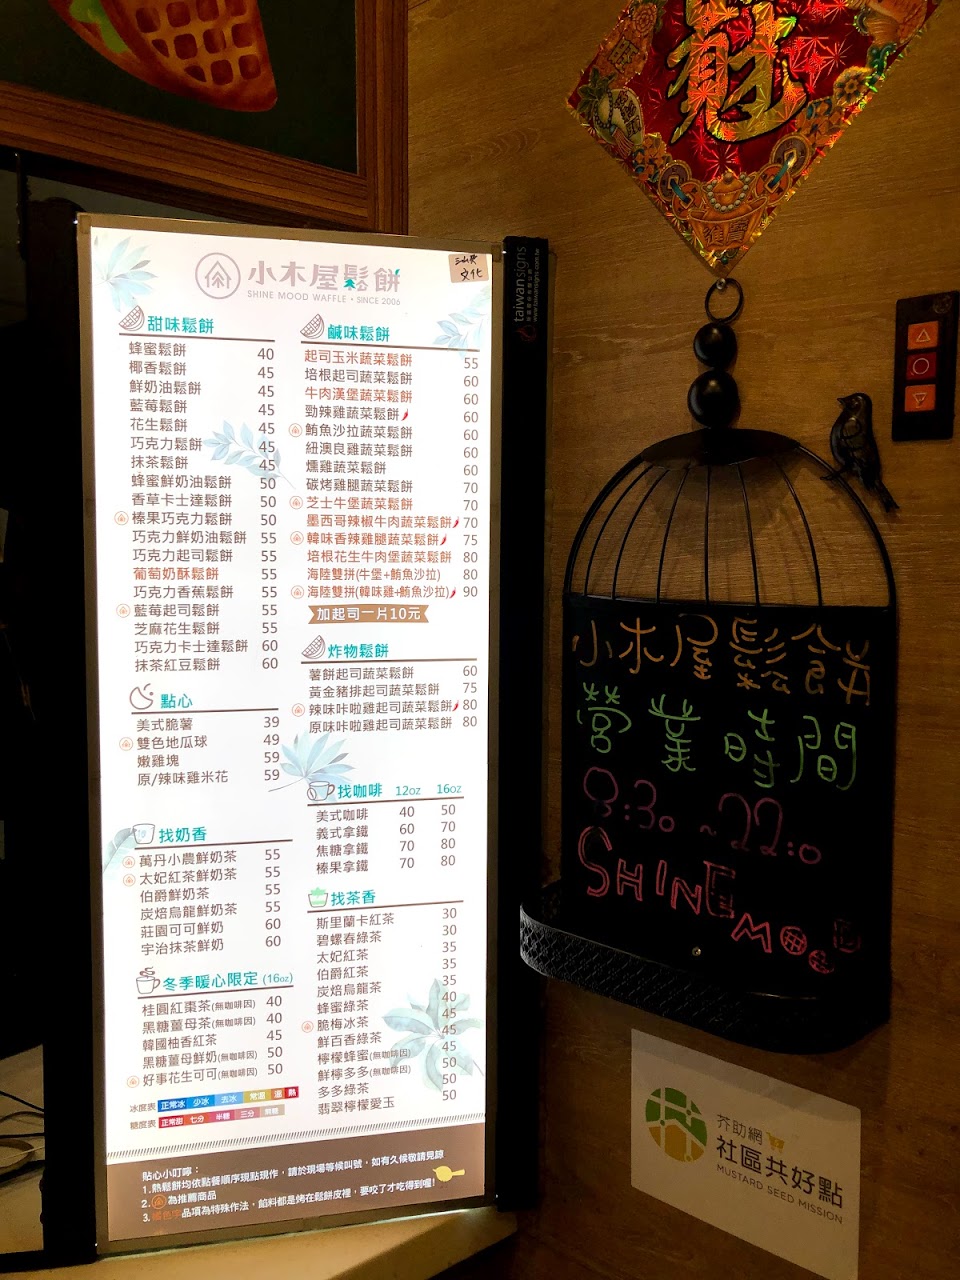 小木屋鬆餅
SHINE MOOD WAFFLE • SINCE 2006
文化
甜味鬆餅
蜂蜜鬆餅 40
椰香鬆餅 45
鮮奶油鬆餅 45
藍莓鬆餅 45
花生鬆餅 45
巧克力鬆餅 45
抹茶鬆餅 45
蜂蜜鮮奶油鬆餅 50
香草卡士達鬆餅 50
榛果巧克力鬆餅 50
巧克力鮮奶油鬆餅 55
巧克力起司鬆餅 55
葡萄奶酥鬆餅 55
巧克力香蕉鬆餅 55
藍莓起司鬆餅 55
芝麻花生鬆餅 55
巧克力卡士達鬆餅 60
抹茶紅豆鬆餅 60
點心
美式脆薯 39
雙色地瓜球 49
嫩雞塊 59
原/辣味雞米花 59
找奶香
萬丹小農鮮奶茶 55
太妃紅茶鮮奶茶 55
伯爵鮮奶茶 55
炭焙烏龍鮮奶茶 55
莊園可可鮮奶 60
宇治抹茶鮮奶 60
冬季暖心限定 (16oz)
桂圓紅棗茶(無咖啡因) 40
黑糖薑母茶(無咖啡因) 40
韓國柚香紅茶 45
黑糖薑母鮮奶(無咖啡因) 50
好事花生可可(無咖啡因) 50
冰度表 正常冰 少冰 去冰 常溫 溫 熱
糖度表 正常甜 七分 半糖 三分 無糖
鹹味鬆餅
起司玉米蔬菜鬆餅 55
培根起司蔬菜鬆餅 60
牛肉漢堡蔬菜鬆餅 60
勁辣雞蔬菜鬆餅 60
鮪魚沙拉蔬菜鬆餅 60
紐澳良雞蔬菜鬆餅 60
燻雞蔬菜鬆餅 60
碳烤雞腿蔬菜鬆餅 70
芝士牛堡蔬菜鬆餅 70
墨西哥辣椒牛肉蔬菜鬆餅 70
韓味香辣雞腿蔬菜鬆餅 75
培根花生牛肉堡蔬菜鬆餅 80
海陸雙拼(牛堡+鮪魚沙拉) 80
海陸雙拼(韓味雞+鮪魚沙拉) 90
加起司一片10元
炸物鬆餅
薯餅起司蔬菜鬆餅 60
黃金豬排起司蔬菜鬆餅 75
辣味咔啦雞起司蔬菜鬆餅 80
原味咔啦雞起司蔬菜鬆餅 80
找咖啡 12oz 16oz
美式咖啡 40 50
義式拿鐵 60 70
焦糖拿鐵 70 80
榛果拿鐵 70 80
找茶香
斯里蘭卡紅茶 30
碧螺春綠茶 30
太妃紅茶 35
伯爵紅茶 35
炭焙烏龍茶 35
蜂蜜綠茶 40
脆梅冰茶 45
鮮百香綠茶 45
檸檬蜂蜜(無咖啡因) 45
鮮檸多多(無咖啡因) 50
多多綠茶 50
翡翠檸檬愛玉 50
貼心小叮嚀：
1.熱鬆餅均依點餐順序現點現作，請於現場等候叫號，如有久候敬請見諒
2.為推薦商品
3.橘色字品項為特殊作法，餡料都是烤在鬆餅皮裡，要咬了才吃得到喔!
taiwansigns
www.taiwansigns.com.tw
小木屋鬆餅
營業時間
8:30~22:00
SHINE MOOD
芥助網
社區共好點
MUSTARD SEED MISSION